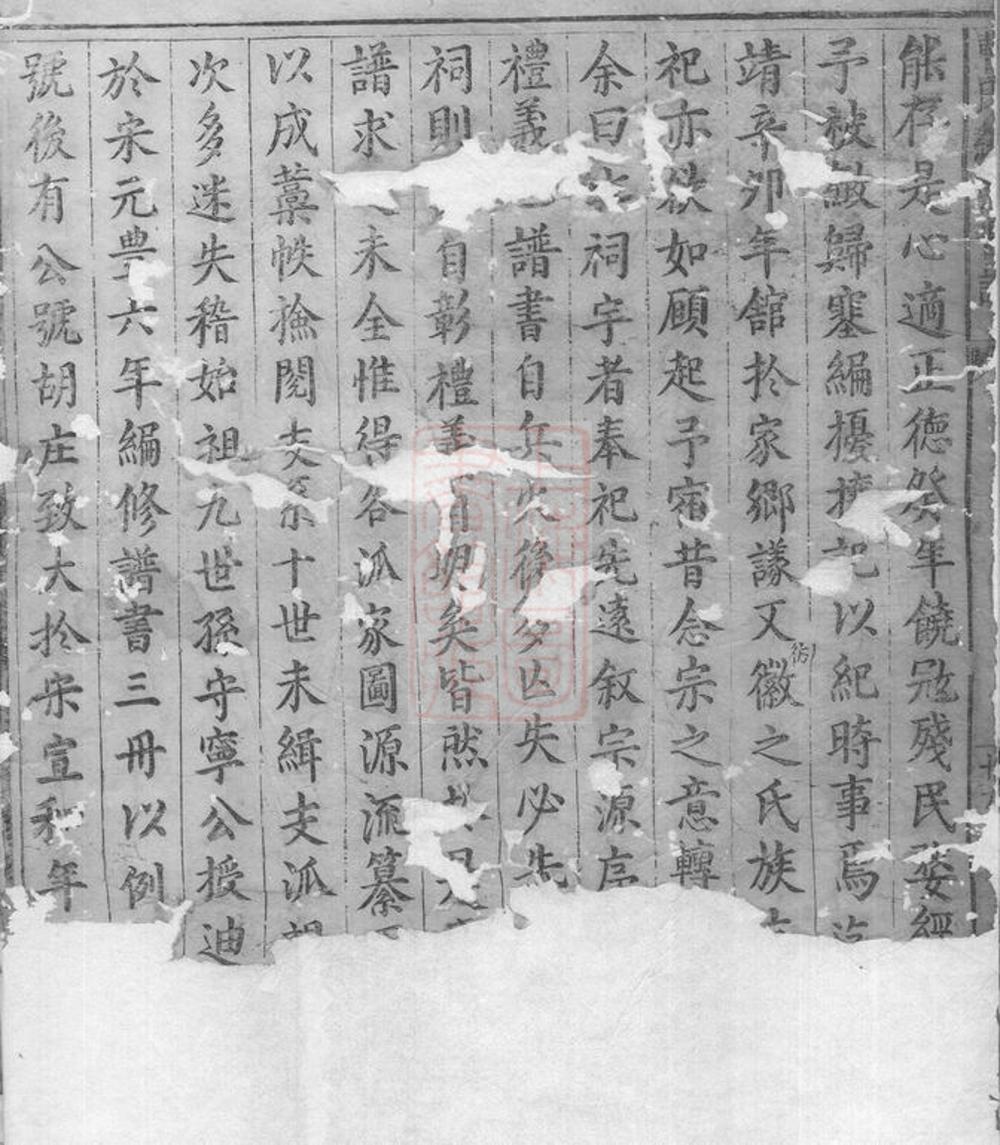 能存是心適正德癸年饒冦殘民婺經
予被敵歸塞編擾擄記以紀時事焉迄
靖辛卯年舘於家鄉議又徽之氏族
祀亦秩如顧起予宿昔念宗之意轉
余曰祠宇者奉祀先遠叙宗源序
禮義譜書自兵火後多亾失必先
祠則自彰禮義眀矣皆然
譜求未全惟得各派家圖源流纂
以成藁帙撿閱支系十世未緝支派
次多迷失稽始祖九世孫守寧公授迪
於宋元豊六年編修譜書三冊以例
號後有公號胡庄致大於宋宣和年